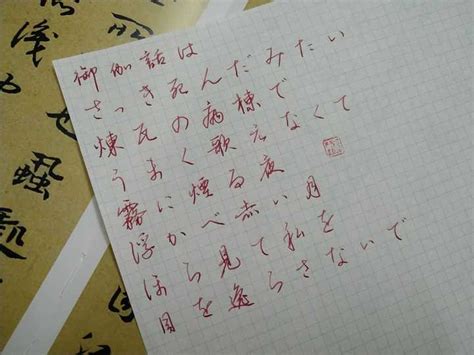 御伽話は
さっき死んだみたい
煉瓦の病棟で
うまく歌えなくて
霧に煙る夜
浮かべ赤い月
ほら見て私を
目を逸らさないで
也